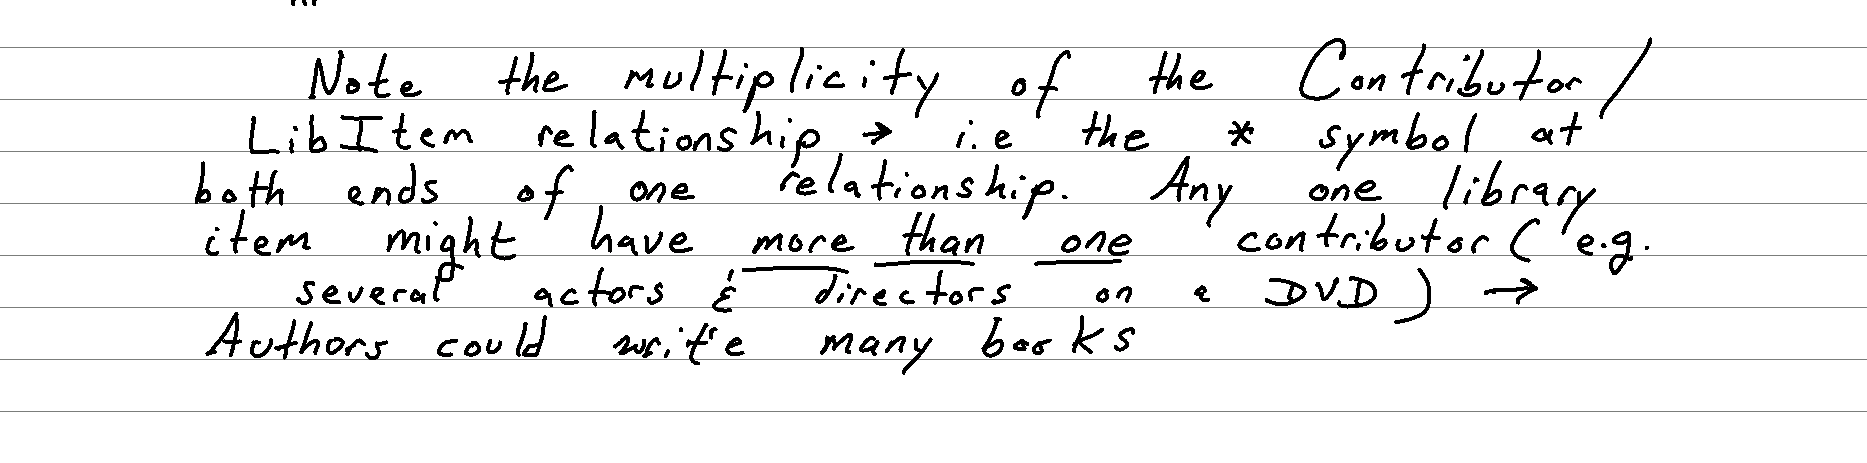 Note the multiplicity of the Contributor/
LibItem relationship → i.e the * symbol at
both ends of one relationship. Any one library
item might have more than one contributor (e.g.
several actors & directors on a DVD) →
Authors could write many books